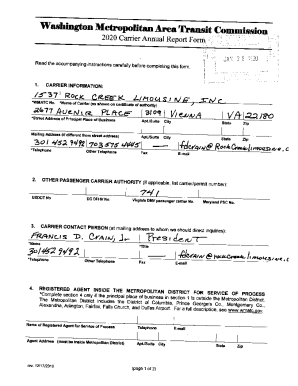 Washington Metropolitan Area Transit Commission
2020 Carrier Annual Report Form
Read the accompanying instructions carefully before completing this form.
JAN 28 2020
1. CARRIER INFORMATION:
1537 ROCK CREEK LIMOUSINE, INC
*WMATC No. *Name of Carrier (as shown on certificate of authority)
2477 AVENIR PLACE 3109 VIENNA VA 22180
*Street Address of Principal Place of Business Apt./Suite City State Zip
Mailing Address (if different from street address) Apt./Suite City State Zip
301 452 9482 703 575 4445
*Telephone Other Telephone Fax E-mail
2. OTHER PASSENGER CARRIER AUTHORITY (if applicable, list carrier/permit number):
741
USDOT No. DC DFHV No. Virginia DMV passenger carrier No. Maryland PSC No.
3. CARRIER CONTACT PERSON (at mailing address to whom we should direct inquiries):
FRANCIS D. CRAIN, Jr President
*Name *Title
301 452 9482
*Telephone Other Telephone Fax E-mail
4. REGISTERED AGENT INSIDE THE METROPOLITAN DISTRICT FOR SERVICE OF PROCESS
*Complete section 4 only if the principal place of business in section 1 is outside the Metropolitan District.
The Metropolitan District includes the District of Columbia, Prince George's County, Montgomery County,
Alexandria, Arlington, Fairfax, Falls Church, and Dulles Airport. For a full description, see www.wmatc.gov.
Name of Registered Agent for Service of Process Telephone E-mail
Agent Address (must be inside Metropolitan District) Apt./Suite City State Zip
(page 1 of 2)